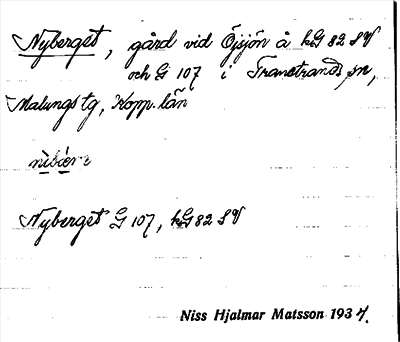 Nyberget, gård vid Öjsjön å kG 82 SV
och G 107 i Transtrands sn,
Malungs tg, Kopp. län
Nyberget G 107, kG 82 SV
Niss Hjalmar Matsson 1934.